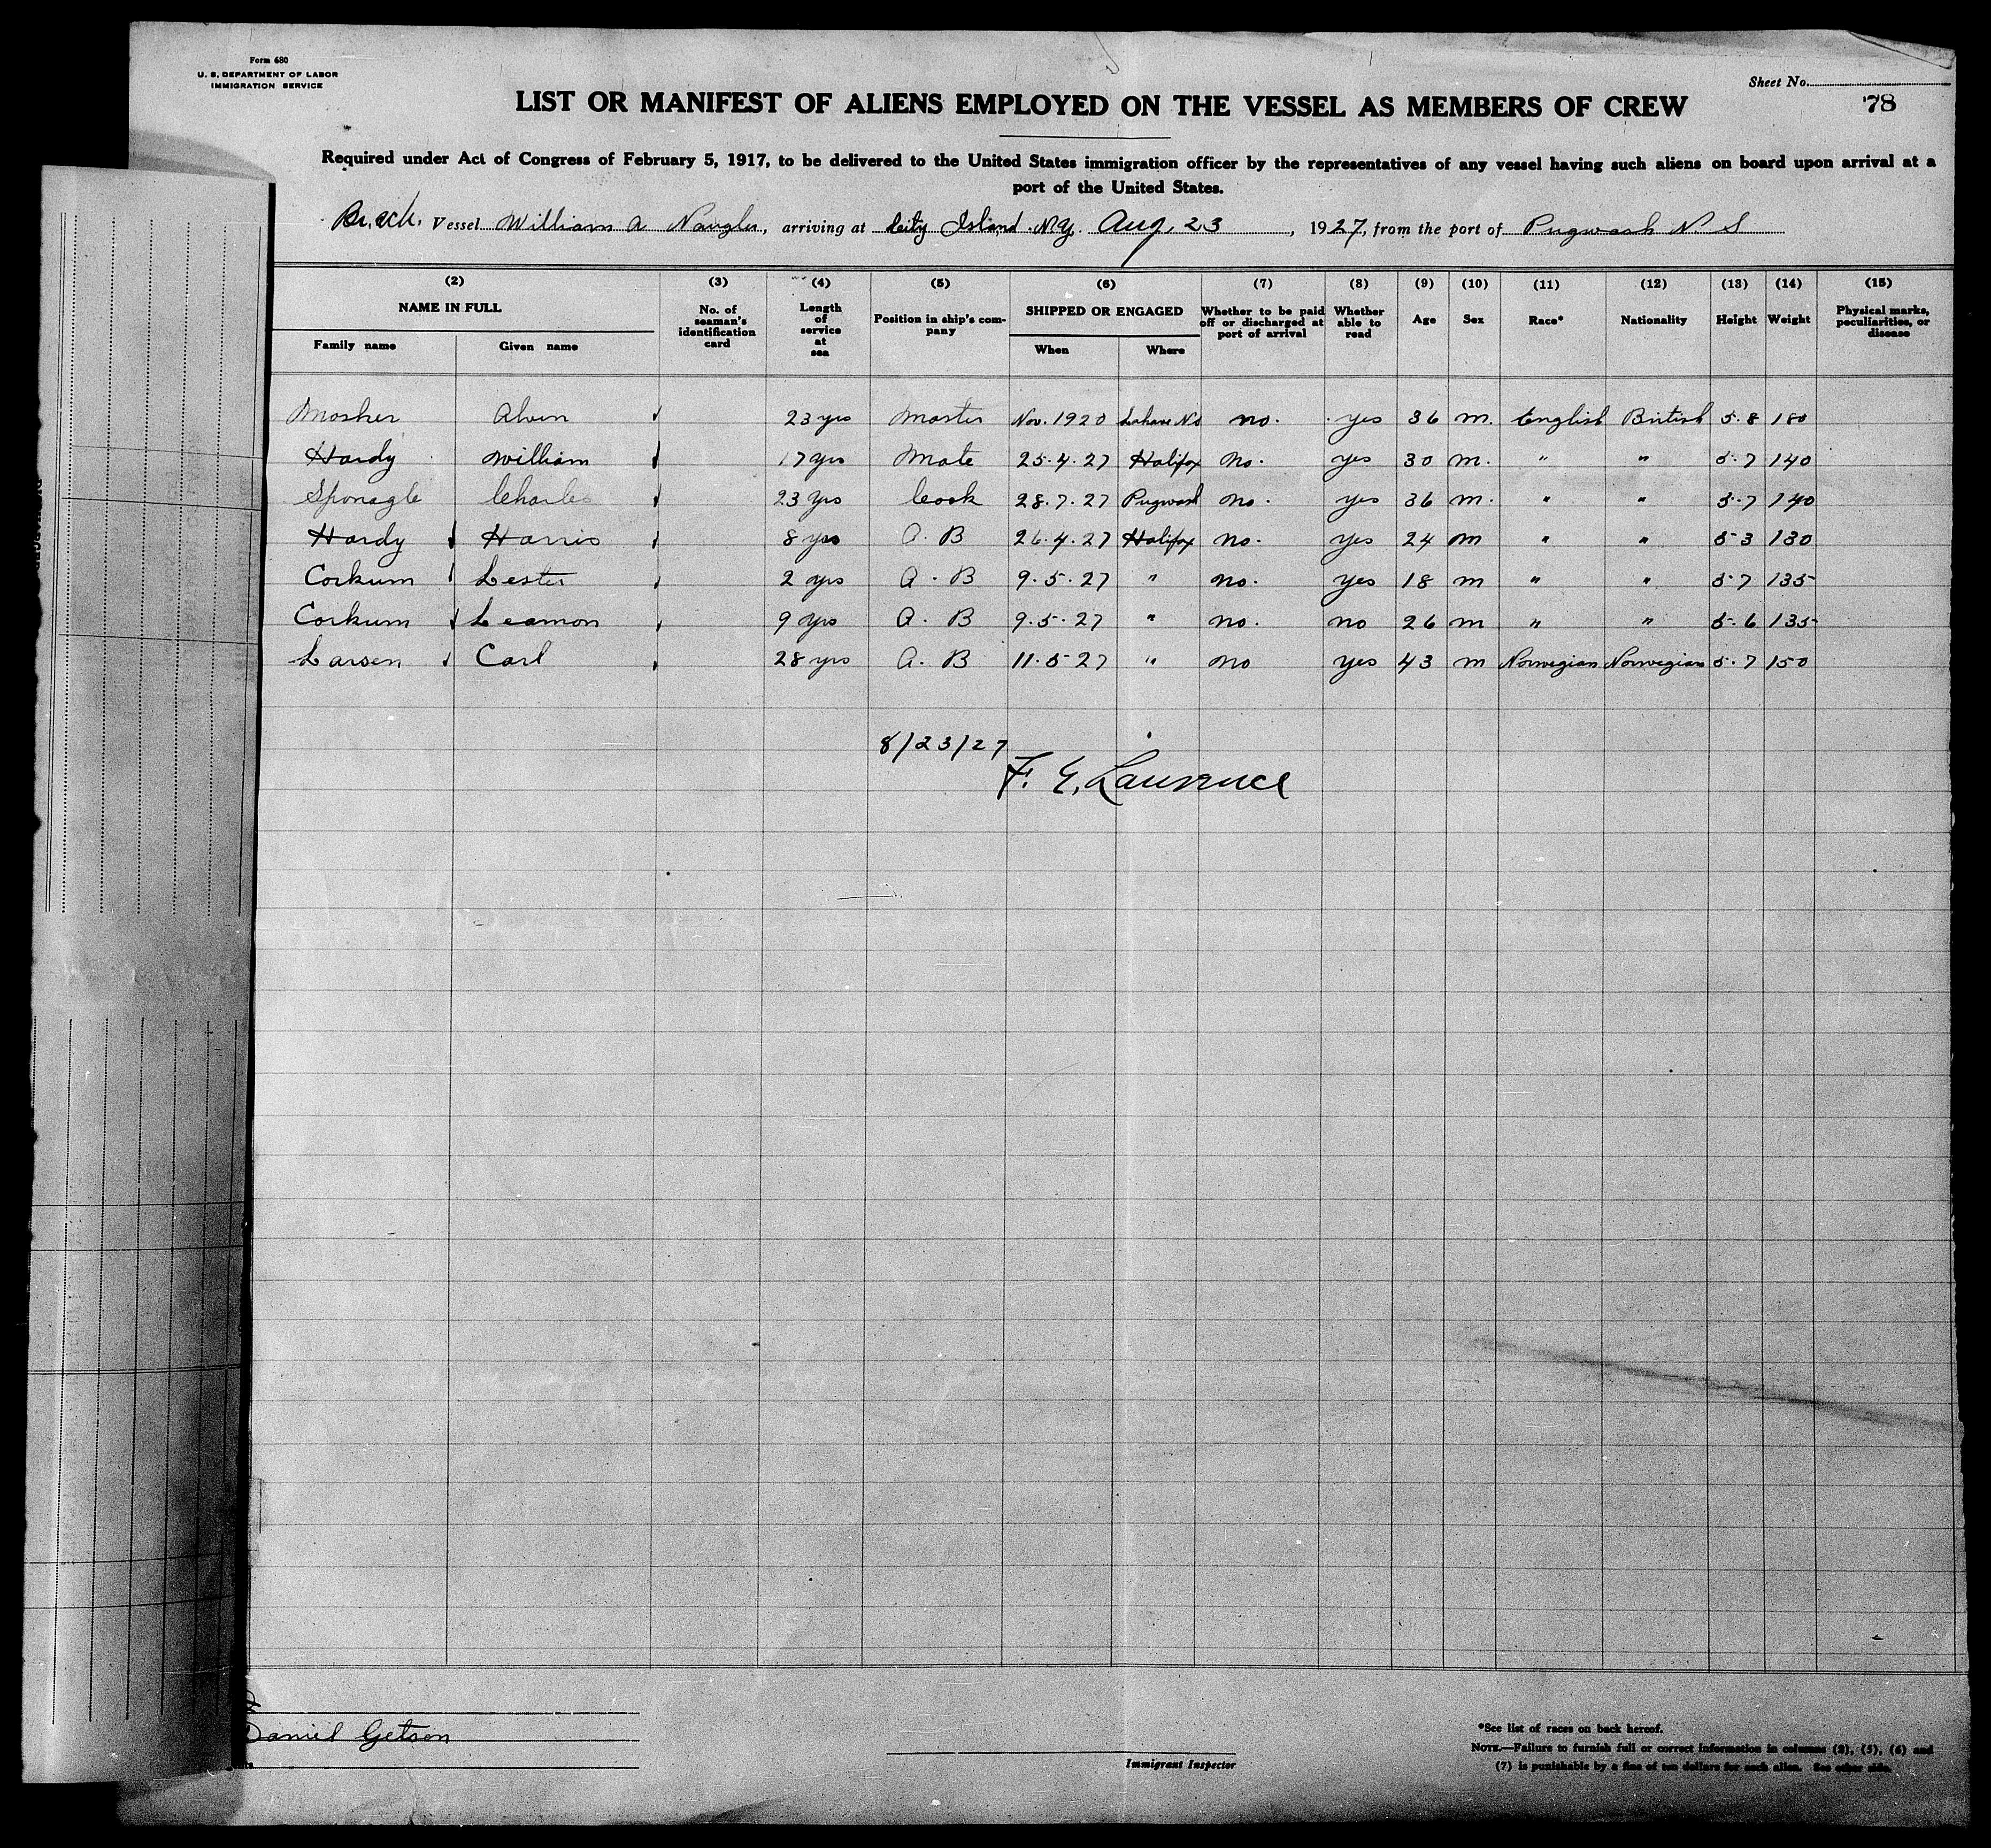 Form 680
U. S. DEPARTMENT OF LABOR
IMMIGRATION SERVICE
Sheet No.
78
LIST OR MANIFEST OF ALIENS EMPLOYED ON THE VESSEL AS MEMBERS OF CREW
Required under Act of Congress of February 5, 1917, to be delivered to the United States immigration officer by the representatives of any vessel having such aliens on board upon arrival at a
port of the United States.
Br. sch. Vessel William A Naugler, arriving at City Island N.Y. Aug. 23, 1927, from the port of Pugwash N. S
(2) (3) (4) (5) (6) (7) (8) (9) (10) (11) (12) (13) (14) (15)
NAME IN FULL No. of seaman's identification card Length of service at sea Position in ship's company SHIPPED OR ENGAGED Whether to be paid off or discharged at port of arrival Whether able to read Age Sex Race* Nationality Height Weight Physical marks, peculiarities, or disease
Family name Given name When Where
Mosher Alvin 23 yrs Master Nov. 1920 Lahave N.S no. yes 36 m. English British 5.8 180
Hardy William 17 yrs Mate 25.4.27 Halifax no. yes 30 m. " " 5.7 140
Sponagle Charles 23 yrs Cook 28.7.27 Pugwash no. yes 36 m. " " 5.7 140
Hardy Harris 8 yrs A. B 26.4.27 Halifax no. yes 24 m " " 5 3 130
Corkum Lester 2 yrs A. B 9.5.27 " no. yes 18 m " " 5.7 135
Corkum Leamon 9 yrs A. B 9.5.27 " no. no 26 m " " 5.6 135
Larsen Carl 28 yrs A. B 11.5.27 " no yes 43 m Norwegian Norwegian 5.7 150
8/23/27
F. E. Lawrence
Daniel Getson
Immigrant Inspector
*See list of races on back hereof.
NOTE.—Failure to furnish full or correct information in columns (2), (5), (6) and
(7) is punishable by a fine of ten dollars for each alien. See other side.